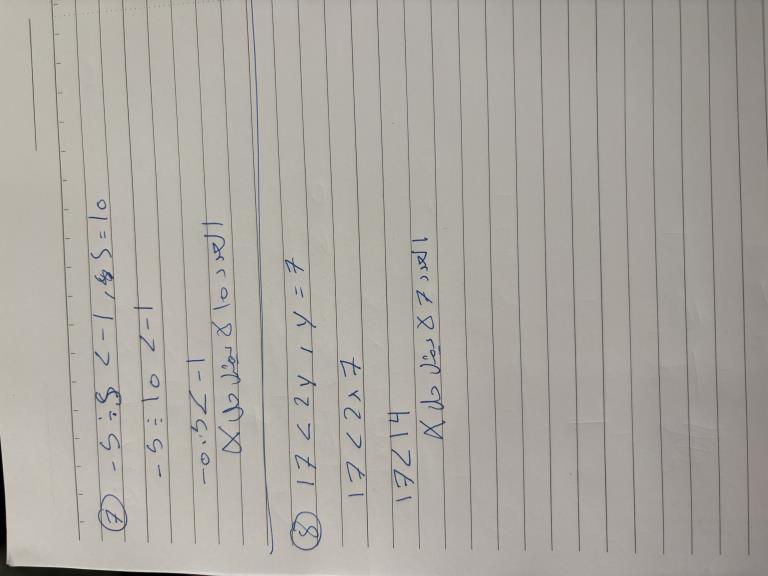 ⑦ -5 ÷ S < -1 , S = 10
-5 ÷ 10 < -1
-0.5 < -1
العدد 10 لا يمثل حل X
⑧ 17 < 2y , y = 7
17 < 2x7
17 < 14
العدد 7 لا يمثل حل X